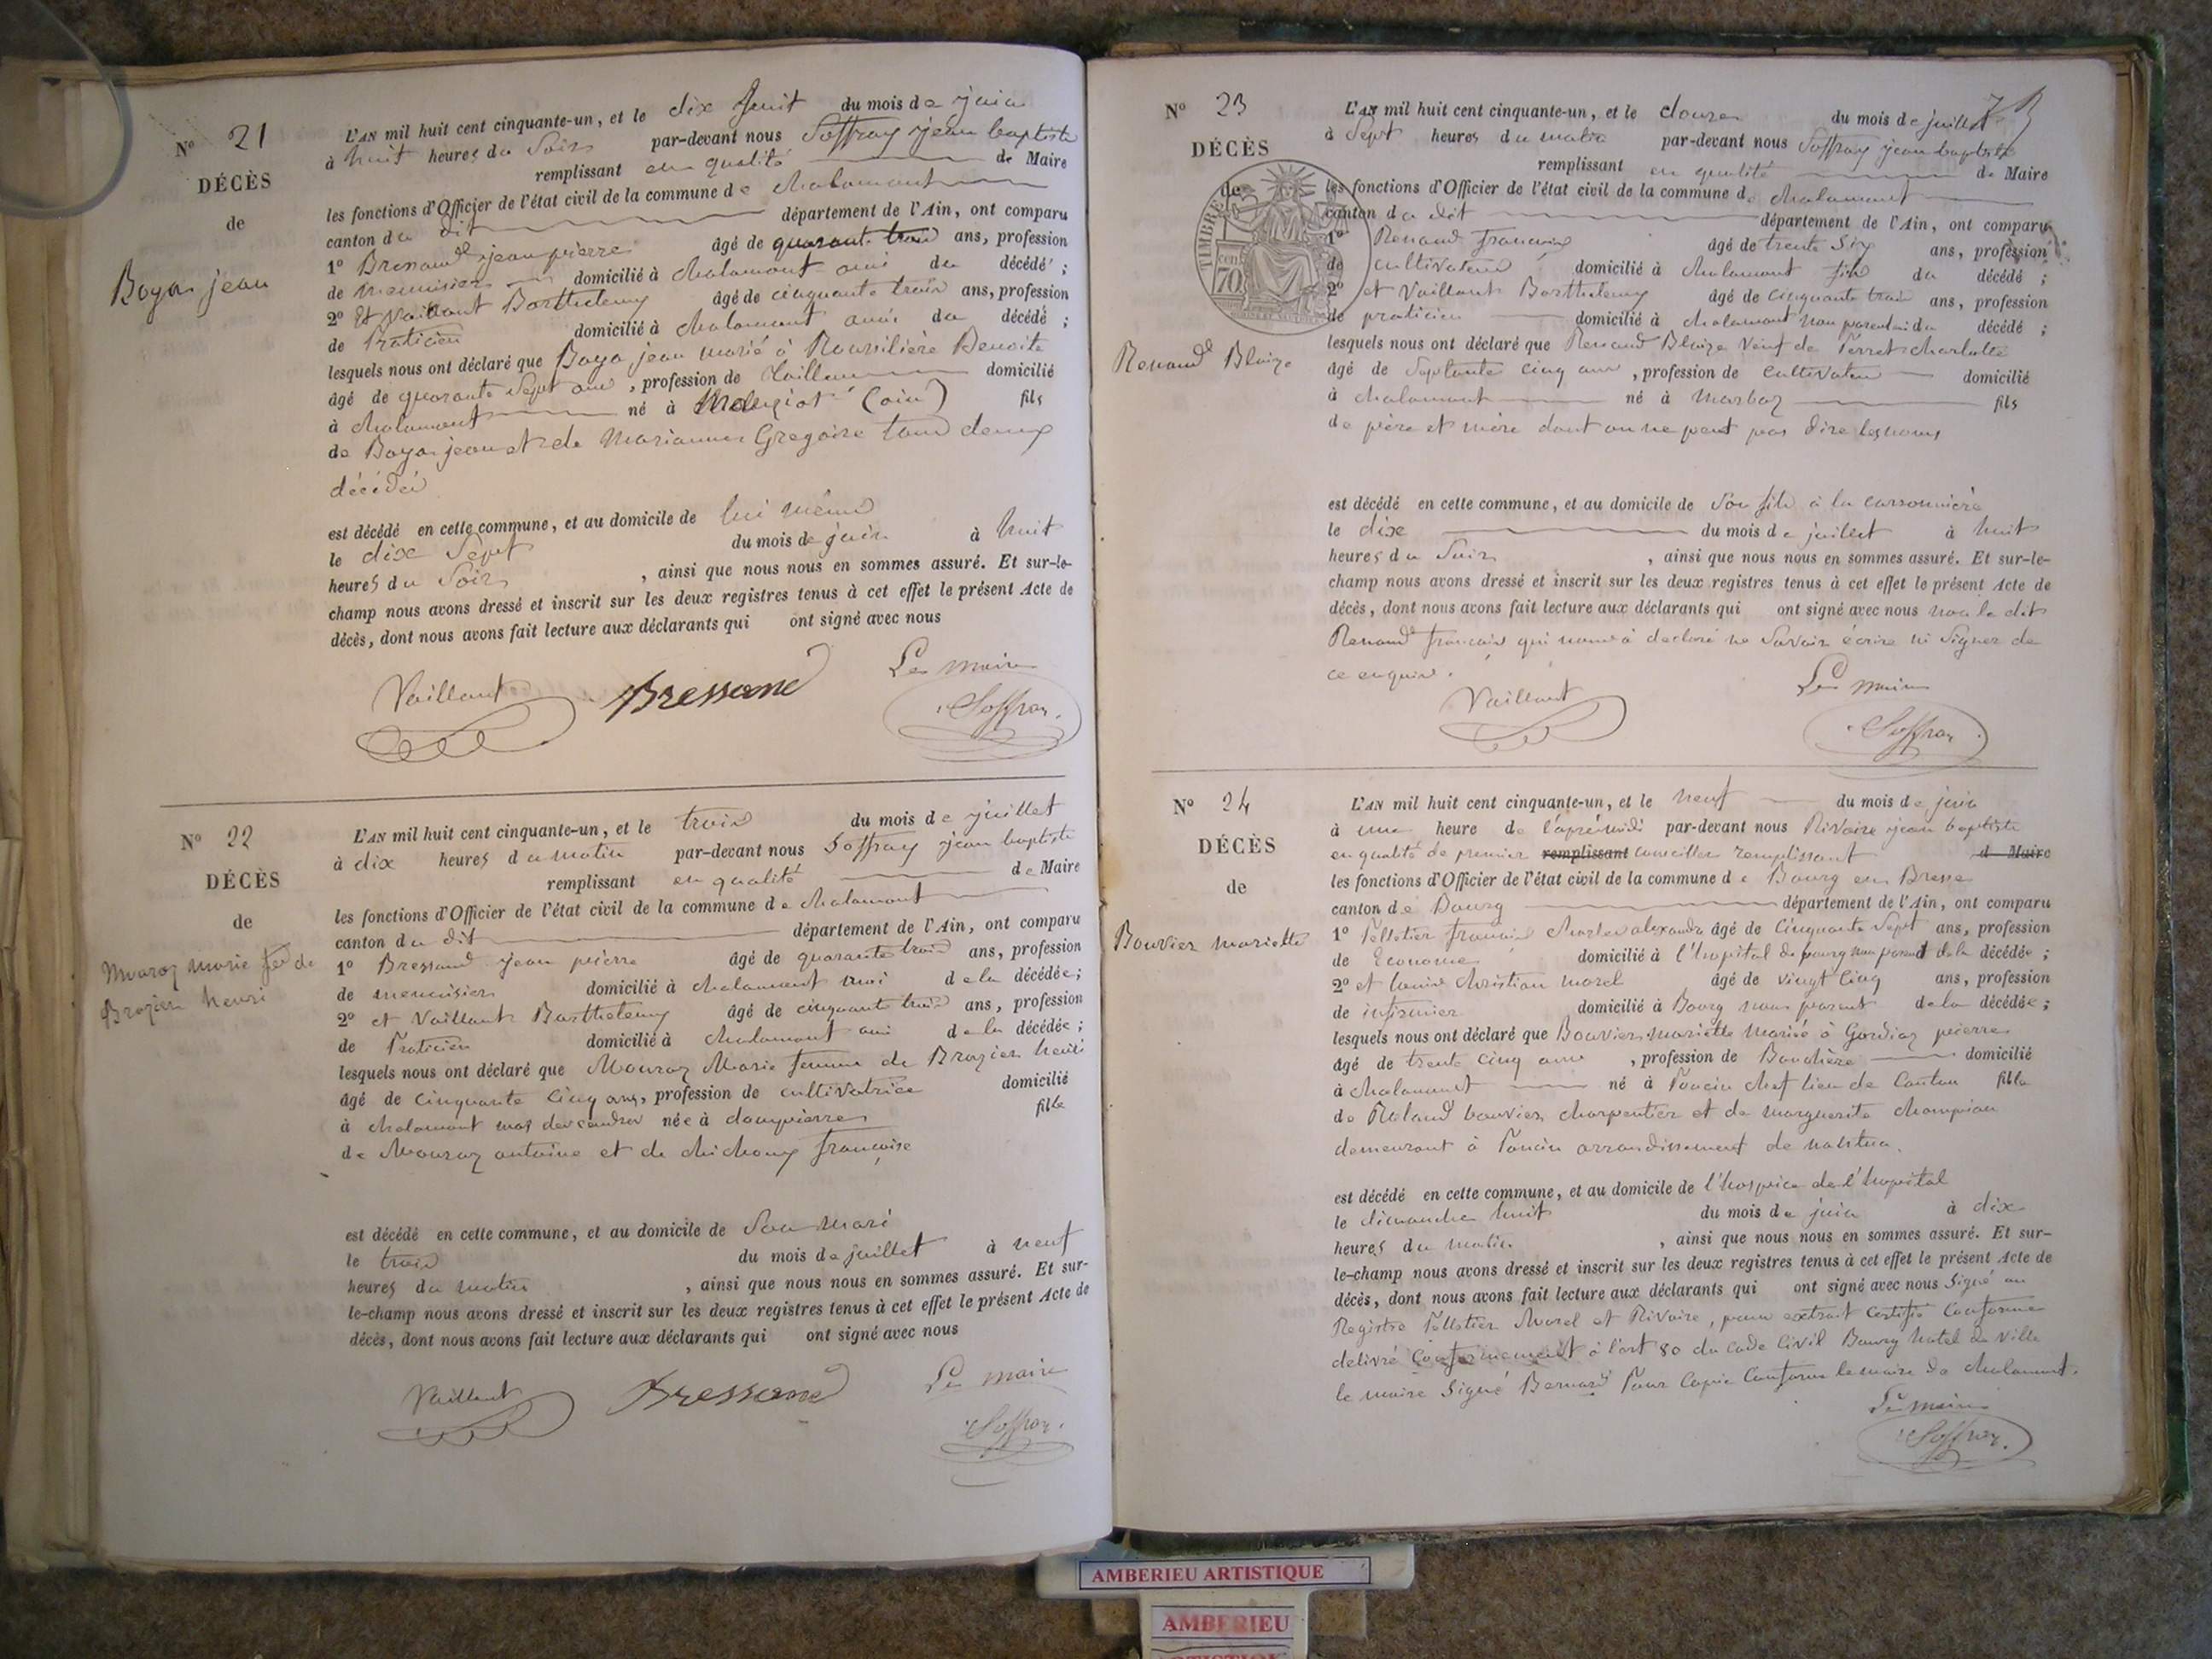 Nº 21
DÉCÈS
de
Boyer jean
L'AN mil huit cent cinquante-un, et le dix huit du mois de juin
à huit heures du soir par-devant nous Soffray jean baptiste
remplissant en qualité de Maire
les fonctions d'Officier de l'état civil de la commune de chalamont
canton du dit département de l'Ain, ont comparu
1º Bressand jean pierre âgé de quarante trois ans, profession
de menuisier domicilié à chalamont ami du décédé ;
2º Et Vaillant Barthelemy âgé de cinquante trois ans, profession
de Praticien domicilié à chalamont ami du décédé ;
lesquels nous ont déclaré que jean marié à Benoite
âgé de quarante sept ans, profession de domicilié
à chalamont né à (ain) fils
de jean et de Marianne Gregoire tous deux
décédés
est décédé en cette commune, et au domicile de lui même
le dix sept du mois de juin à huit
heures du soir, ainsi que nous nous en sommes assuré. Et sur-le-
champ nous avons dressé et inscrit sur les deux registres tenus à cet effet le présent Acte de
décès, dont nous avons fait lecture aux déclarants qui ont signé avec nous
Vaillant Bressand Le maire
Soffray
Nº 22
DÉCÈS
de
Mouroz marie fe de
Brazier henri
L'AN mil huit cent cinquante-un, et le trois du mois de juillet
à dix heures du matin par-devant nous Soffray jean baptiste
remplissant en qualité de Maire
les fonctions d'Officier de l'état civil de la commune de chalamont
canton du dit département de l'Ain, ont comparu
1º Bressand jean pierre âgé de quarante trois ans, profession
de menuisier domicilié à chalamont ami de la décédée ;
2º et Vaillant Barthelemy âgé de cinquante trois ans, profession
de Praticien domicilié à chalamont ami de la décédée ;
lesquels nous ont déclaré que Mouroz Marie femme de Brazier henri
âgé de cinquante cinq ans, profession de cultivatrice domicilié
à chalamont née à dompierre fille
de Mouroz antoine et de françoise
est décédé en cette commune, et au domicile de son mari
le trois du mois de juillet à neuf
heures du matin, ainsi que nous nous en sommes assuré. Et sur-
le-champ nous avons dressé et inscrit sur les deux registres tenus à cet effet le présent Acte de
décès, dont nous avons fait lecture aux déclarants qui ont signé avec nous
Vaillant Bressand Le maire
Soffray
Nº 23
DÉCÈS
de
TIMBRE
70
Renaud Blaize
L'AN mil huit cent cinquante-un, et le douze du mois de juillet
à sept heures du matin par-devant nous Soffray jean baptiste
remplissant en qualité de Maire
les fonctions d'Officier de l'état civil de la commune de chalamont
canton du dit département de l'Ain, ont comparu
1º Renaud françois âgé de trente six ans, profession
de cultivateur domicilié à chalamont fils du décédé ;
2º et Vaillant Barthelemy âgé de cinquante trois ans, profession
de praticien domicilié à chalamont non parent du décédé ;
lesquels nous ont déclaré que Renaud Blaize Veuf de Perret charlotte
âgé de septante cinq ans, profession de cultivateur domicilié
à chalamont né à marboz fils
de père et mère dont on ne peut pas dire les noms
est décédé en cette commune, et au domicile de son fils à la
le dix du mois de juillet à huit
heures du soir, ainsi que nous nous en sommes assuré. Et sur-le-
champ nous avons dressé et inscrit sur les deux registres tenus à cet effet le présent Acte de
décès, dont nous avons fait lecture aux déclarants qui ont signé avec nous non le dit
Renaud françois qui nous a declaré ne savoir écrire ni signer de
ce enquis.
Vaillant Le maire
Soffray
Nº 24
DÉCÈS
de
Bouvier mariette
L'AN mil huit cent cinquante-un, et le neuf du mois de juin
à une heure de l'après midi par-devant nous Rivoire jean baptiste
en qualité de premier remplissant conseiller remplissant d Maire
les fonctions d'Officier de l'état civil de la commune de Bourg en Bresse
canton de Bourg département de l'Ain, ont comparu
1º Pelletier françois charles alexandre âgé de cinquante sept ans, profession
de Econome domicilié à l'hopital de bourg non parent de la décédée ;
2º et louis christian morel âgé de vingt cinq ans, profession
de infirmier domicilié à Bourg non parent de la décédée ;
lesquels nous ont déclaré que Bouvier mariette Mariée à pierre
âgé de trente cinq ans, profession de Bouchère domicilié
à chalamont né à Poncin chef lieu de Canton fille
de Roland bouvier charpentier et de marguerite champion
demeurant à Poncin arrondissement de nantua.
est décédé en cette commune, et au domicile de l'hospice de l'hopital
le dimanche huit du mois de juin à dix
heures du matin, ainsi que nous nous en sommes assuré. Et sur-
le-champ nous avons dressé et inscrit sur les deux registres tenus à cet effet le présent Acte de
décès, dont nous avons fait lecture aux déclarants qui ont signé avec nous Signé au
Registre Pelletier Morel et Rivoire, pour extrait certifié conforme
delivré Conformement à l'art 80 du code Civil Bourg hotel de ville
le maire Signé Bernard Pour Copie Conforme le maire de chalamont.
Le maire
Soffray
AMBERIEU ARTISTIQUE
AMBERIEU
ARTISTIQUE